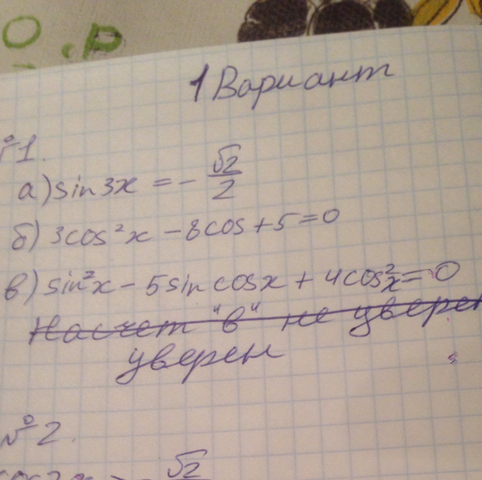 1 Вариант
№1.
а) sin 3x = - √2/2
б) 3cos²x - 8cos + 5 = 0
в) sin²x - 5sin cosx + 4cos²x = 0
Насчет "в" не уверен
уверен
№2.
cos2x = - √2